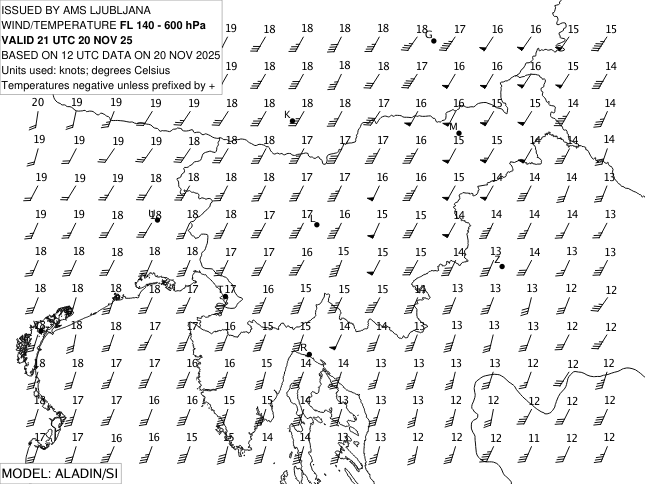 ISSUED BY AMS LJUBLJANA
WIND/TEMPERATURE FL 140 - 600 hPa
VALID 21 UTC 20 NOV 25
BASED ON 12 UTC DATA ON 20 NOV 2025
Units used: knots; degrees Celsius
Temperatures negative unless prefixed by +
19 18 18 18 18 18 17 16 16 15 15
G
19 18 18 18 18 17 16 16 16 15 15
20 19 19 19 18 18 18 18 17 16 16 15 15 14 14
K
M
19 19 19 19 18 18 18 17 17 17 16 15 15 14 14 14
19 19 19 18 18 18 17 17 17 16 16 15 14 14 14 13
19 19 18 18 18 18 17 17 16 15 15 14 14 14 14 13
U
L
18 18 18 18 18 17 17 16 15 15 15 14 13 14 13 13
Z
18 18 18 18 17 17 16 15 15 15 14 13 13 13 12 12
T
18 18 18 17 17 16 15 15 14 14 13 13 13 13 12 12
R
18 18 17 17 16 16 15 14 14 13 13 13 13 12 12 12
18 17 17 16 16 15 15 14 13 13 13 12 12 12 12 12
17 17 16 16 15 15 14 14 13 13 12 12 12 11 12 12
MODEL: ALADIN/SI